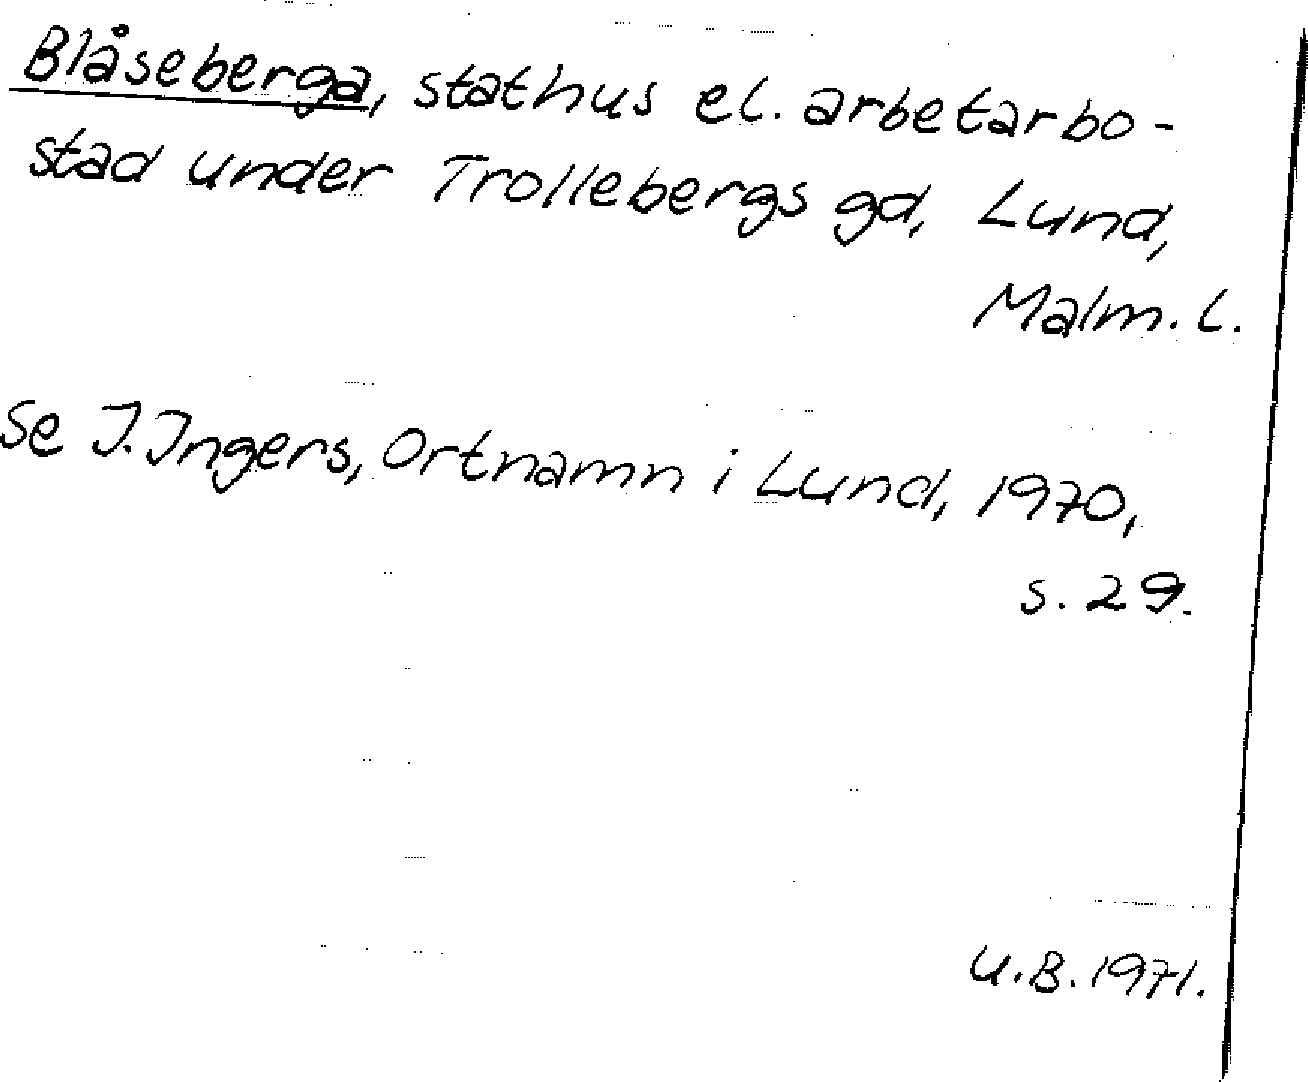 Blåseberga, stathus el. arbetarbo-
stad under Trollebergs gd, Lund,
Malm. l.
se I. Ingers, Ortnamn i Lund, 1970,
s. 29.
U.B. 1971.